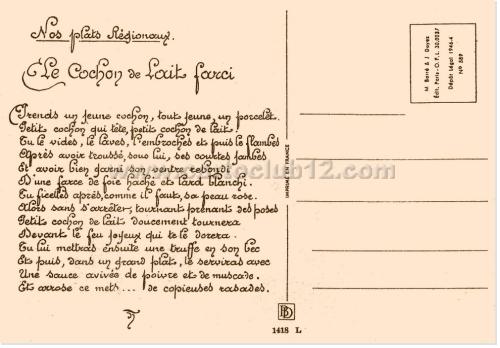 Nos plats Régionaux.
Le Cochon de Lait farci
Prends un jeune cochon, tout jeune, un porcelet.
Petit cochon qui tète, petit cochon de lait.
Tu le vides, le laves, l'embroches et puis le flambes
Après avoir troussé, sous lui, ses courtes jambes
Et avoir bien garni son ventre rebondi
D'une farce de foie haché et lard blanchi.
Tu ficelles après, comme il faut, sa peau rose.
Alors sans s'arrêter, tournant prenant des poses
Petit cochon de lait doucement tournera
Devant le feu joyeux qui te le dorera.
Tu lui mettras ensuite une truffe en son bec
Et puis, dans un grand plat, le serviras avec
Une sauce avivée de poivre et de muscade.
Et arrose ce mets ... de copieuses rasades.
IMPRIMÉ EN FRANCE
BD
1418 L
M. Barré & J. Dayez
Édit. Paris - O.P.L. 30.0027
Dépôt Légal 1946-4
No 589
club12.com